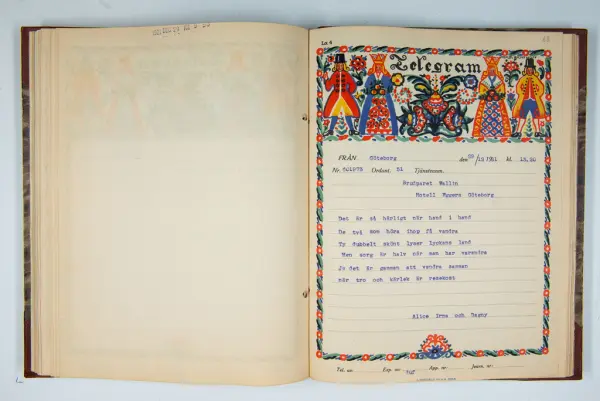 Lx 4
Telegram
FRÅN Göteborg den /10 1921 kl.
Nr. Ordant. 51 Tjänsteanm.
Brudparet Wallin
Hotell Göteborg
Det är så härligt när hand i hand
De två som höra ihop få vandra
Ty dubbelt skönt lyser lyckans land
Men sorg är halv när man har varandra
Ja det är gamman att vandra samman
när tro och kärlek är resekost
Alice Irma och Dagny
Tel. nr: Exp. nr: App. nr: Journ. nr: